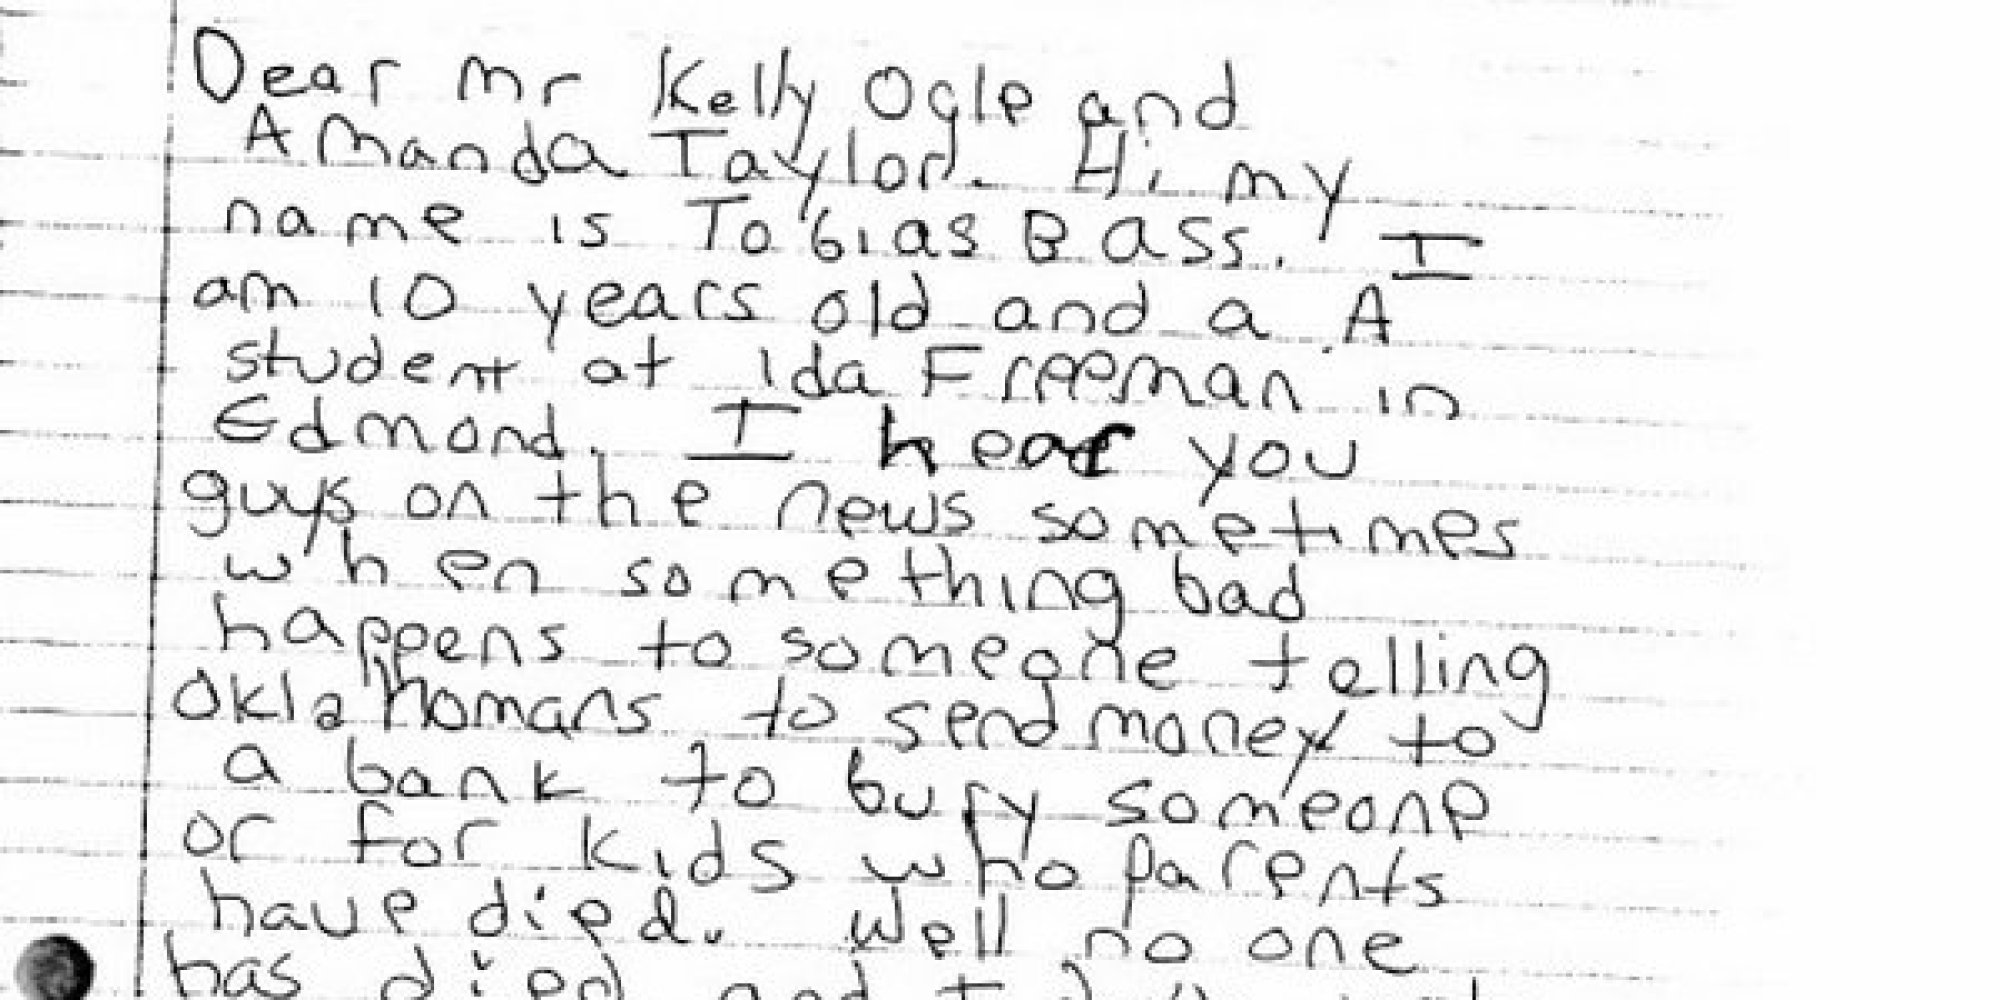 Dear Mr Kelly Ogle and
Amanda Taylor. Hi my
name is Tobias Bass. I
am 10 years old and a A
student at Ida Freeman in
Edmond. I hear you
guys on the news sometimes
when something bad
happens to someone telling
Oklahomans to send money to
a bank to bury someone
or for kids who parents
have died. Well no one
has died and I